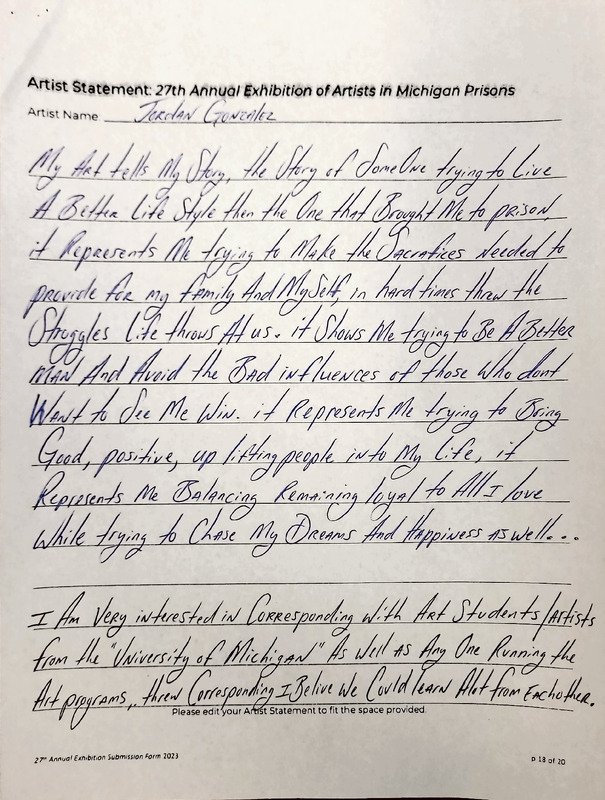 Artist Statement: 27th Annual Exhibition of Artists in Michigan Prisons
Artist Name: Jordan Gonzalez
My Art tells My Story, the Story of SomeOne trying to Live
A Better Life Style then the One that Brought Me to prison,
it Represents Me trying to Make the Sacratices needed to
provide for my family And MySelf, in hard times threw the
Struggles Life throws At us. it Shows Me trying to Be A Better
MAN And Avoid the Bad influences of those Who dont
Want to See Me Win. it Represents Me trying to Bring
Good, positive, up lifting people into My Life, it
Represents Me Balancing Remaining loyal to All I love
While trying to Chase My Dreams And Happiness as well...
I Am Very interested in Corresponding with Art Students/Artists
from the "University of Michigan" As Well as Any One Running the
Art programs,, threw Corresponding I Belive We Could learn Alot from Each other.
Please edit your Artist Statement to fit the space provided.
27th Annual Exhibition Submission Form 2023
p 18 of 20